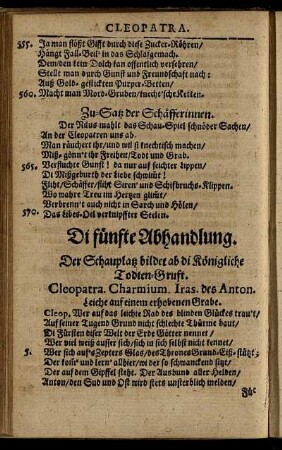 CLEOPATRA.
555. Ja man flößt Gifft durch diese Zucker-Röhren/
Hängt Fall-Beil' in das Schlafgemach.
Dem/den kein Dolch kan offentlich versehren/
Stellt man durch Gunst und Freundschafft nach:
Auß Gold-gestickten Purper-Betten/
560. Macht man Mord-Gruben/ knecht'sche Ketten.
Zu-Satz der Schäfferinnen.
Der Nius mahlt das Schau-Spiel schnöder Sachen/
An der Cleopatren uns ab.
Man räuchert ihr/ und wil si knechtisch machen
Miß-gönn't ihr Freiheit/ Tod und Grab.
565. Verfluchte Gunst! da nur auf feichter Lippen/
Di Mißgeburth der Liebe schwimmt!
Fliht/ Schäffer/ fliht Siren' und Schifbruchs-Klippen.
Wo wahre Treu im Hertzen glimt/
Verbrenn't auch nicht in Sarch und Hölen/
570. Das Libes-Oel verknipffter Seelen.
Di fünfte Abhandlung.
Der Schauplatz bildet ab di Königliche
Todten-Gruft.
Cleopatra. Charmium. Iras. des Anton.
Leiche auf einem erhobenen Grabe.
Cleop. Wer auf das leichte Rad des blinden Glückes trau't/
Auf seiner Tugend Grund nicht schlechte Thürme baut/
Di Fürsten diser Welt der Erde Götter nennet/
Wer viel weiß ausser sich/ sich in sich selbst nicht kennet/
5. Wer sich auf's Zepters Glas/ des Thrones Grund-Eiß-stütz't;
Der kom' und lern' allhier/ wi der so schwanckend sitzt/
Der auf dem Gipffel steht. Der Ausbund aller Helden/
Anton/ den Sud und Ost wird stets unsterblich melden/